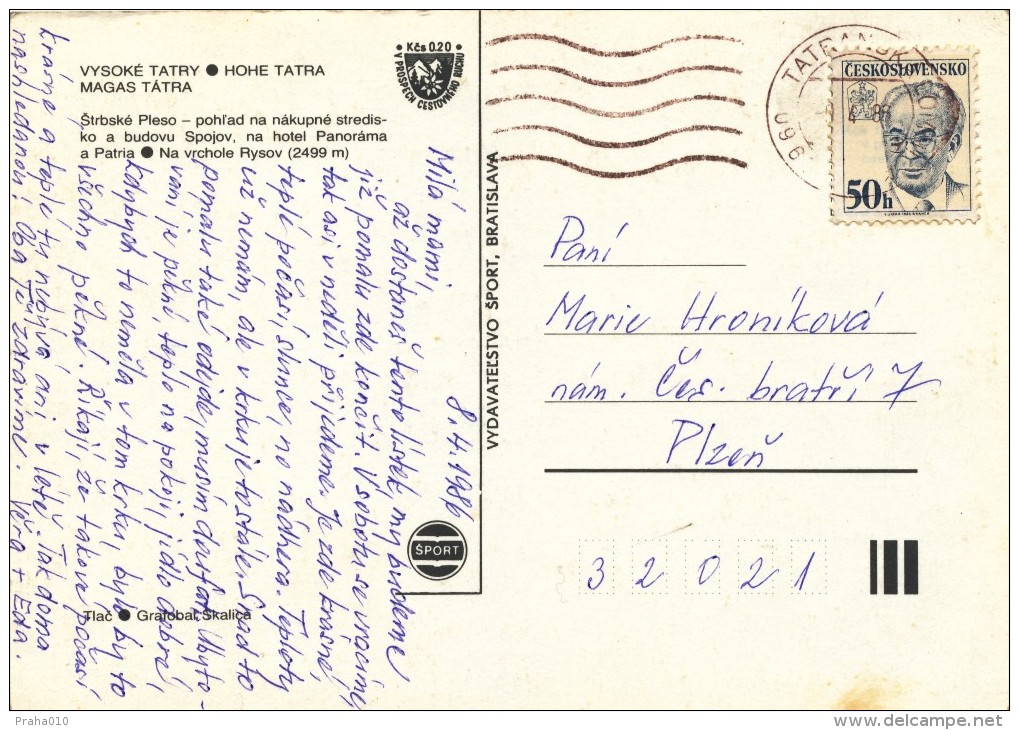 VYSOKÉ TATRY ● HOHE TATRA
MAGAS TÁTRA
Štrbské Pleso – pohľad na nákupné stredis-
ko a budovu Spojov, na hotel Panoráma
a Patria ● Na vrchole Rysov (2499 m)
Kčs 0.20
V PROSPECH CESTOVNÉHO RUCHU
8. 4. 1986
Milá mámi,
až dostaneš tento lístek, my budeme
již pomalu zde končit. V sobotu se vracíme,
tak asi v neděli přijdeme. Je zde krásné,
teplé počasí, slunce, no nádhera. Teploty
už nemám, ale v krku je to stále. Snad to
pomalu také odejde, musím doufat. Ubyto-
vání je pěkné, teplo na pokoji, jídlo dobré,
kdybych to neměla v tom krku, bylo by to
všechno pěkné. Říkají, že takové počasí
krásné a teplé tu nebývá ani v létě. Tak doma
nashledanou. Oba Tě zdravíme. Věra + Eda.
Tlač ● Grafobal Skalica
ŠPORT
VYDAVATEĽSTVO ŠPORT, BRATISLAVA
TATRANSK
059 60
ČESKOSLOVENSKO
50h
Paní
Marie Hroníková
nám. Čes. bratří 7
Plzeň
32021
Praha010
delcampe.net